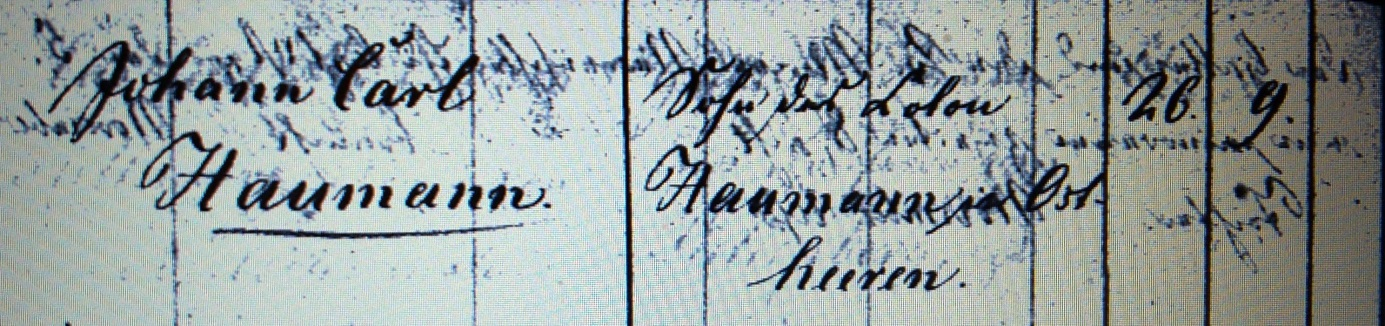 Johann Carl
Haumann.
Sohn des Colon
Haumann in Ost-
heeren.
26. 9.